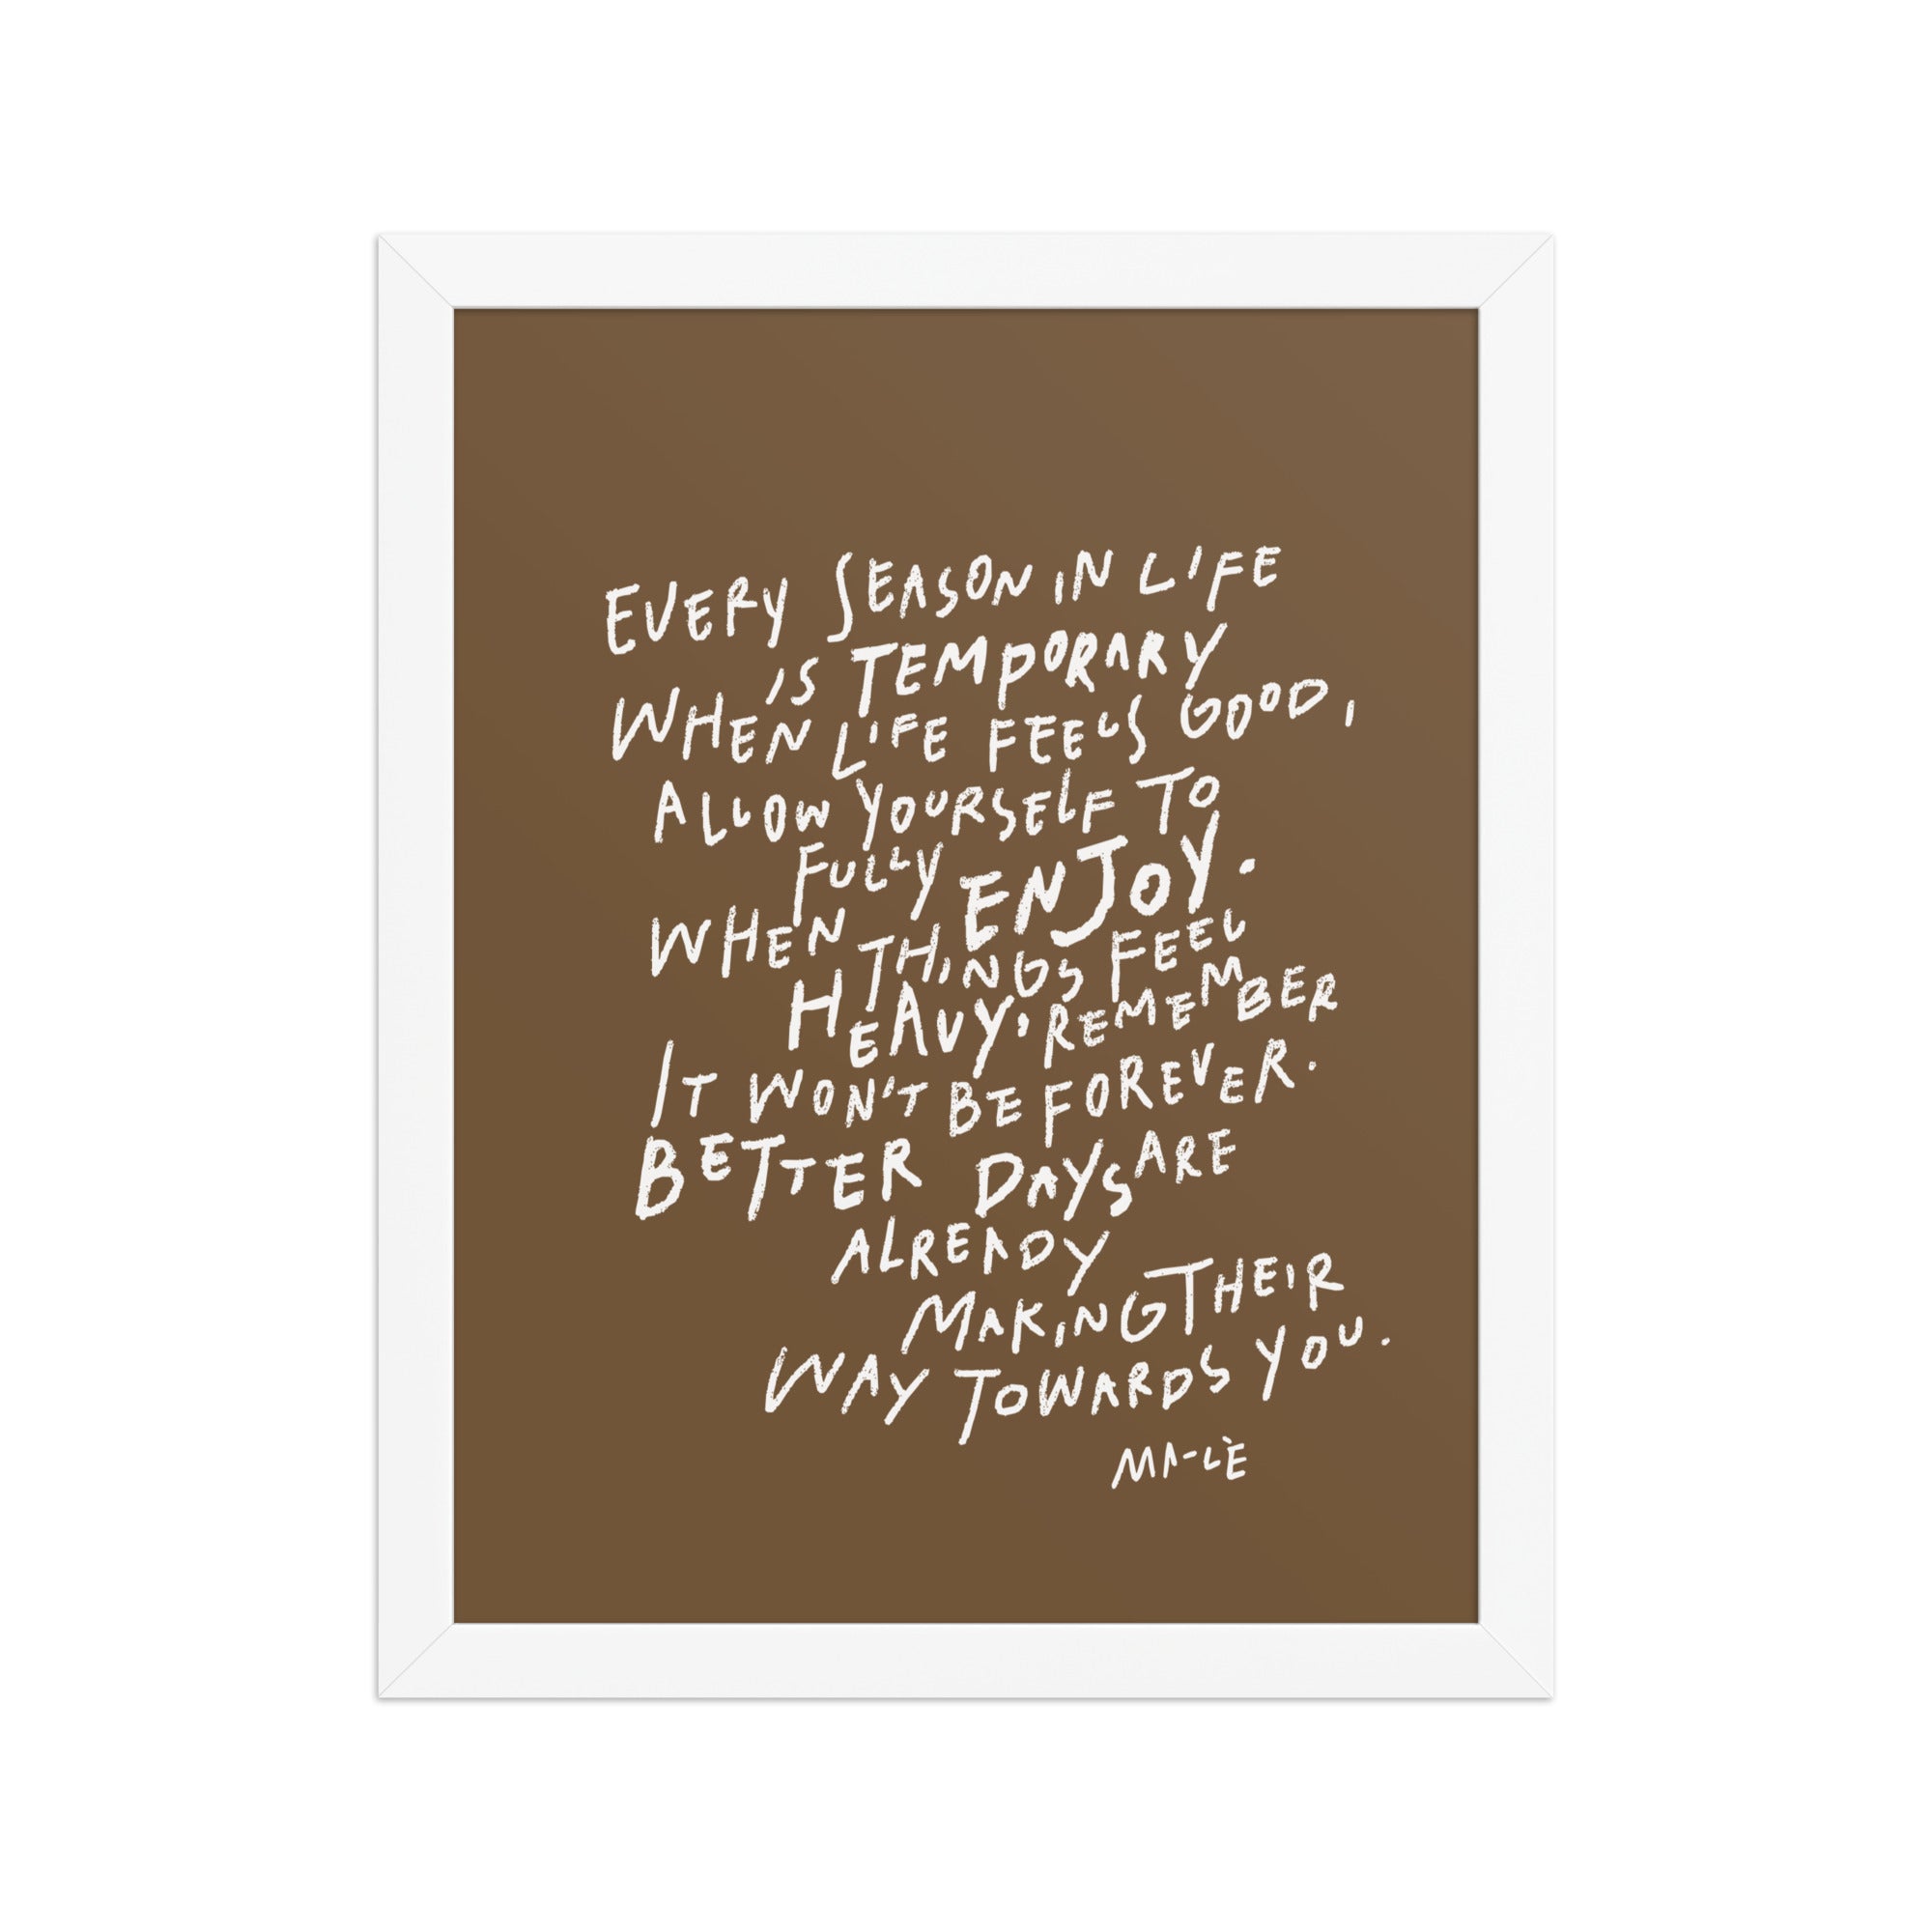 EVERY SEASON IN LIFE
IS TEMPORARY
WHEN LIFE FEELS GOOD,
ALLOW YOURSELF TO
FULLY ENJOY.
WHEN THINGS FEEL
HEAVY, REMEMBER
IT WON'T BE FOREVER.
BETTER DAYS ARE
ALREADY
MAKING THEIR
WAY TOWARDS YOU.
MA-LÈ